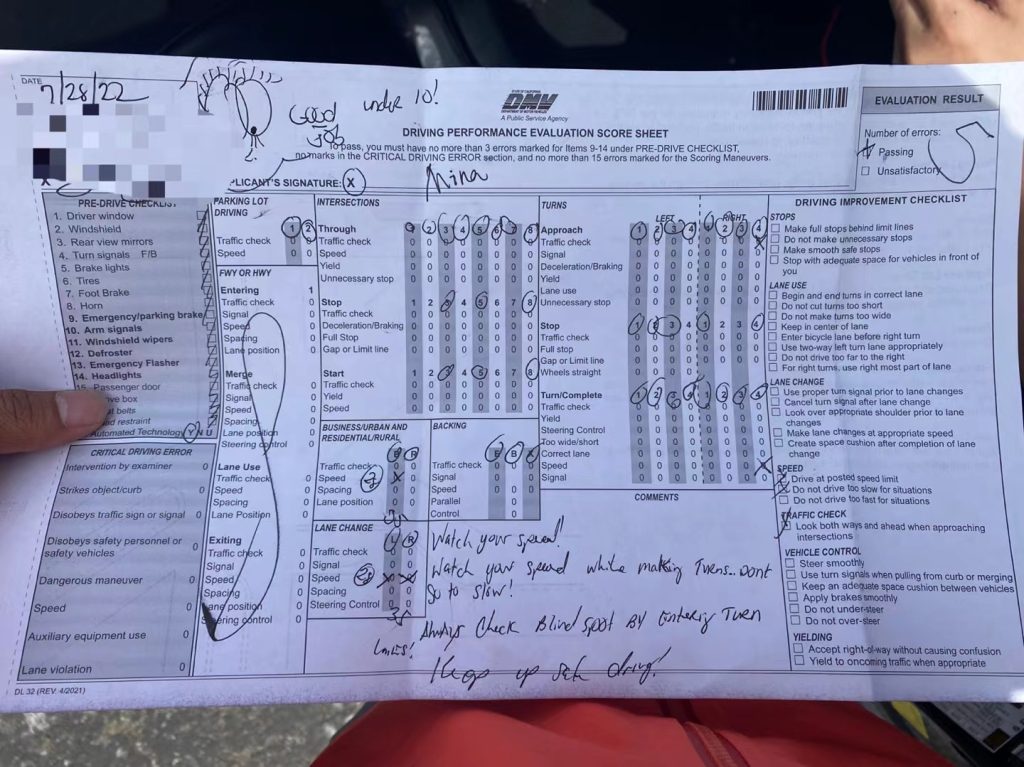 DATE
7/28/22
Good Job
under 10!
STATE OF CALIFORNIA
DMV
DEPARTMENT OF MOTOR VEHICLES
A Public Service Agency
DRIVING PERFORMANCE EVALUATION SCORE SHEET
To pass, you must have no more than 3 errors marked for Items 9-14 under PRE-DRIVE CHECKLIST,
no marks in the CRITICAL DRIVING ERROR section, and no more than 15 errors marked for the Scoring Maneuvers.
X
PLICANT'S SIGNATURE: X
Mina
EVALUATION RESULT
Number of errors: 5
Passing
Unsatisfactory
PRE-DRIVE CHECKLIST
1. Driver window
2. Windshield
3. Rear view mirrors
4. Turn signals F/B
5. Brake lights
6. Tires
7. Foot Brake
8. Horn
9. Emergency/parking brake
10. Arm signals
11. Windshield wipers
12. Defroster
13. Emergency Flasher
14. Headlights
15. Passenger door
ve box
t belts
ad restraint
Automated Technology Y N U
CRITICAL DRIVING ERROR
Intervention by examiner 0
Strikes object/curb 0
Disobeys traffic sign or signal 0
Disobeys safety personnel or
safety vehicles 0
Dangerous maneuver 0
Speed 0
Auxiliary equipment use 0
Lane violation 0
DL 32 (REV. 4/2021)
PARKING LOT
DRIVING 1 2
Traffic check 0 0
Speed 0 0
FWY OR HWY
Entering 1
Traffic check 0
Signal 0
Speed 0
Spacing 0
Lane position 0
Merge
Traffic check 0
Signal 0
Speed 0
Spacing 0
Lane position 0
Steering control 0
Lane Use
Traffic check 0
Speed 0
Spacing 0
Lane Position 0
Exiting
Traffic check 0
Signal 0
Speed 0
Spacing 0
Lane position 0
ering control 0
INTERSECTIONS
Through 1 2 3 4 5 6 7 8
Traffic check 0 0 0 0 0 0 0 0
Speed 0 0 0 0 0 0 0 0
Yield 0 0 0 0 0 0 0 0
Unnecessary stop 0 0 0 0 0 0 0 0
Stop 1 2 3 4 5 6 7 8
Traffic check 0 0 0 0 0 0 0 0
Deceleration/Braking 0 0 0 0 0 0 0 0
Full Stop 0 0 0 0 0 0 0 0
Gap or Limit line 0 0 0 0 0 0 0 0
Start 1 2 3 4 5 6 7 8
Traffic check 0 0 0 0 0 0 0 0
Yield 0 0 0 0 0 0 0 0
Speed 0 0 0 0 0 0 0 0
BUSINESS/URBAN AND
RESIDENTIAL/RURAL B R
Traffic check 0 0
Speed 2 X 0
Spacing 0 0
Lane position 0 0
LANE CHANGE L R
Traffic check 0 0
Signal 0 0
Speed 2 X X
Spacing 0 0
Steering Control 0 0
35
Lanes!
BACKING
Traffic check 0 0 0
Signal 0 0 0
Speed 0 0 0
Parallel 0 0
Control 0 0
TURNS
LEFT RIGHT
Approach 1 2 3 4 1 2 3 4
Traffic check 0 0 0 0 0 0 0 X
Signal 0 0 0 0 0 0 0 0
Deceleration/Braking 0 0 0 0 0 0 0 0
Yield 0 0 0 0 0 0 0 0
Lane use 0 0 0 0 0 0 0 0
Unnecessary stop 0 0 0 0 0 0 0 0
Stop 1 2 3 4 1 2 3 4
Traffic check 0 0 0 0 0 0 0 0
Full stop 0 0 0 0 0 0 0 0
Gap or Limit line 0 0 0 0 0 0 0 0
Wheels straight 0 0 0 0 0 0 0 0
Turn/Complete 1 2 3 4 1 2 3 4
Traffic check 0 0 0 0 0 0 0 0
Yield 0 0 0 0 0 0 0 0
Steering Control 0 0 0 0 0 0 0 0
Too wide/short 0 0 0 0 0 0 0 0
Correct lane 0 0 0 0 0 0 0 0
Speed 0 0 0 0 0 0 0 X
Signal 0 0 0 0 0 0 0 0
COMMENTS
Watch your speed!
Watch your speed while making Turns.. Dont
Go to slow!
Always Check Blind spot By Entering Turn
Keep up safe driving!
DRIVING IMPROVEMENT CHECKLIST
STOPS
Make full stops behind limit lines
Do not make unnecessary stops
Make smooth safe stops
Stop with adequate space for vehicles in front of
you
LANE USE
Begin and end turns in correct lane
Do not cut turns too short
Do not make turns too wide
Keep in center of lane
Enter bicycle lane before right turn
Use two-way left turn lane appropriately
Do not drive too far to the right
For right turns, use right most part of lane
LANE CHANGE
Use proper turn signal prior to lane changes
Cancel turn signal after lane change
Look over appropriate shoulder prior to lane
changes
Make lane changes at appropriate speed
Create space cushion after completion of lane
change
SPEED
Drive at posted speed limit
Do not drive too slow for situations
Do not drive too fast for situations
TRAFFIC CHECK
Look both ways and ahead when approaching
intersections
VEHICLE CONTROL
Steer smoothly
Use turn signals when pulling from curb or merging
Keep an adequate space cushion between vehicles
Apply brakes smoothly
Do not under-steer
Do not over-steer
YIELDING
Accept right-of-way without causing confusion
Yield to oncoming traffic when appropriate